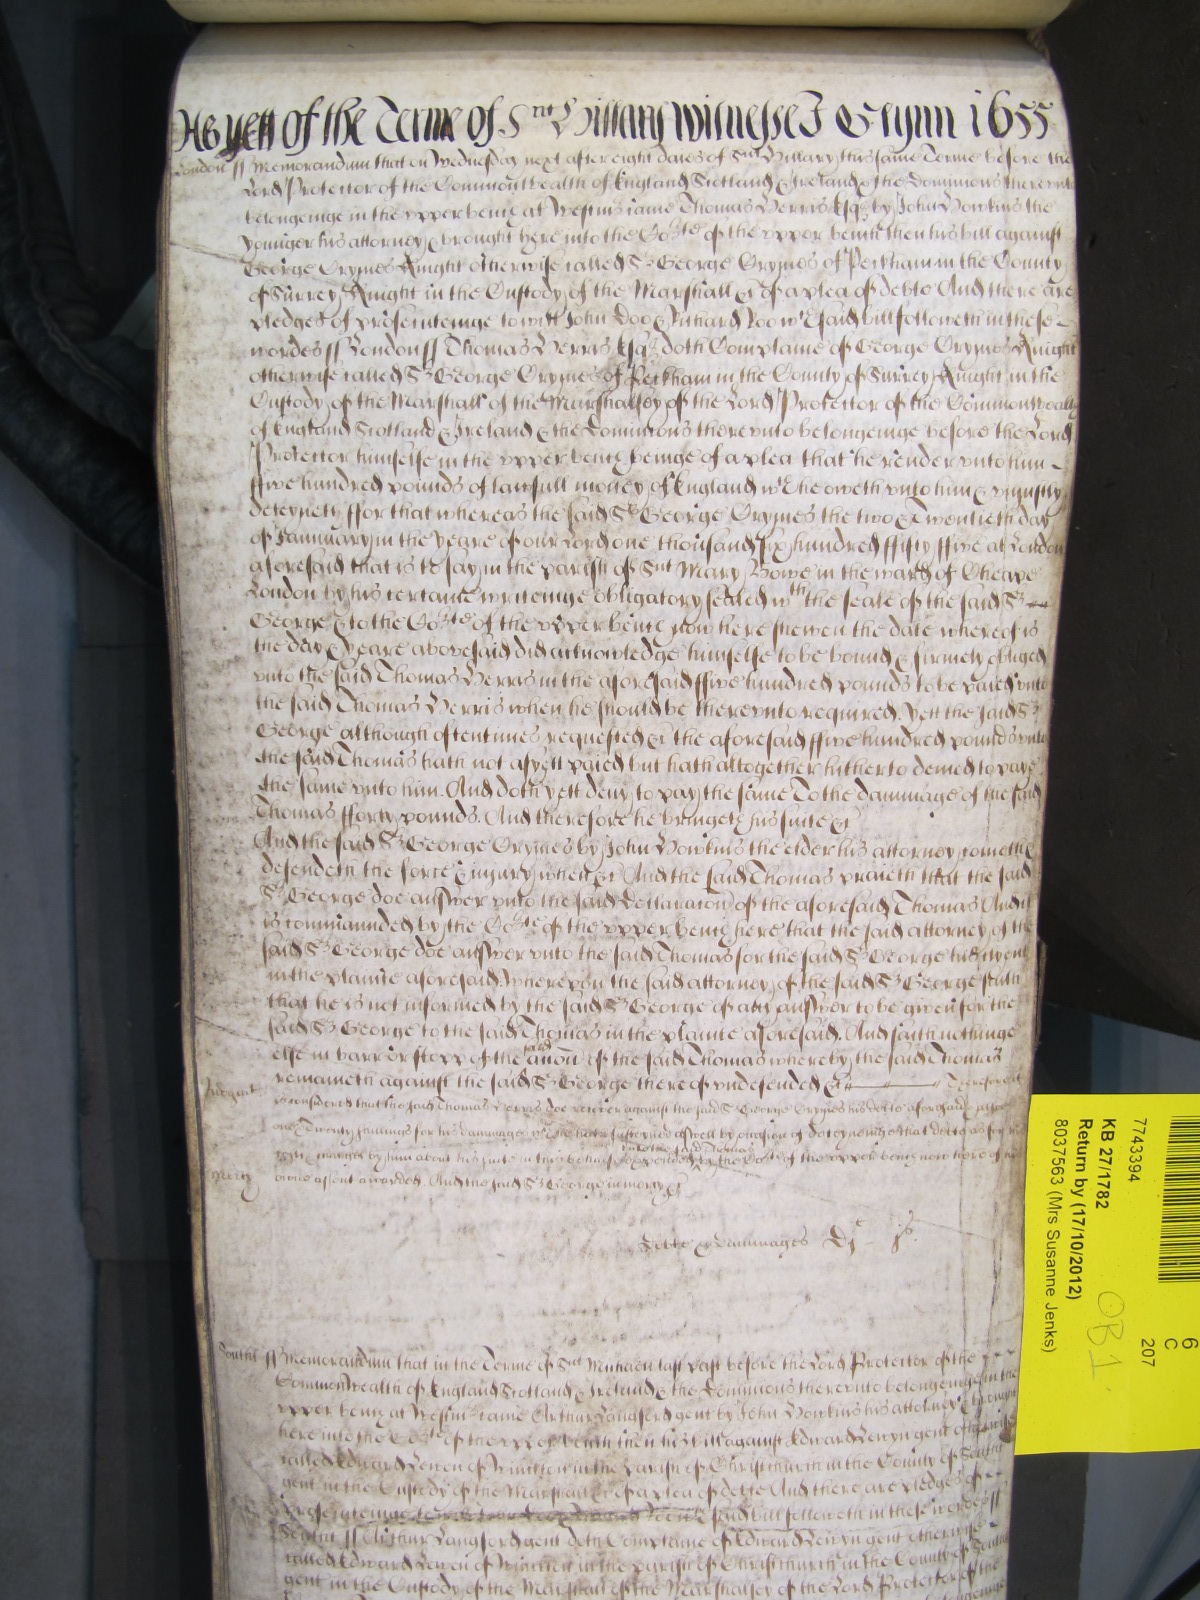 As yett of the Terme of Snt Hillary Witnesse J Glynn 1655
London ss Memorandum that on Wednesday next after eight daies of Snt Hillary this same Terme before the
Lord Protector of the Commonwealth of England Scotland & Ireland & the Dominions thereunto
belongeinge in the upper bench at Westmr came Thomas Herris Esqr by John Howkins the
younger his attorney & brought here into the Corte of the upper bench then his bill against
George Grymes Knight otherwise called Sr George Grymes of Peckham in the County
of Surrey Knight in the Custody of the Marshall &c of a plea of debte And there are
pledges of prosecuteinge to witt John Doo & Richard Roo wch said bill followeth in these
wordes ss London ss Thomas Herris Esqr doth Complaine of George Grymes Knight
otherwise called Sr George Grymes of Peckham in the County of Surrey Knight in the
Custody of the Marshall of the Marshalsey of the Lord Protector of the Commonwealth
of England Scotland & Ireland & the Dominions thereunto belongeinge before the Lord
Protector himselfe in the upper bench beinge of a plea that he render unto him
ffive hundred pounds of lawfull money of England wch he oweth unto him & uniustly
deteyneth ffor that whereas the said Sr George Grymes the two & Twentieth day
of Jannuary in the yeare of our Lord one thousand six hundred ffifty ffive at London
aforesaid that is to say in the parish of Snt Mary Bowe in the ward of Cheape
London by his certaine writeinge obligatory sealed wth the seale of the said Sr
George & to the Corte of the upper bench now here shewen the date whereof is
the day & yeare abovesaid did acknowledge himselfe to be bound & firmely obliged
unto the said Thomas Herris in the aforesaid ffive hundred pounds to be paied unto
the said Thomas Herris when he should be thereunto required. Yett the said Sr
George although oftentimes requested &c the aforesaid ffive hundred pounds unto
the said Thomas hath not as yett paied but hath altogether hitherto denied to paye
the same unto him. And doth yett deny to pay the same To the dammage of the said
Thomas fforty pounds. And therefore he bringeth his suite &c
And the said Sr George Grymes by John Howkins the elder his attorney cometh &
defendeth the force & iniury when &c And the said Thomas praieth that the said
Sr George doe answer unto the said Declaracon of the aforesaid Thomas And it
is commaunded by the Corte of the upper bench here that the said attorney of the
said Sr George doe answer unto the said Thomas for the said Sr George his client
in the plainte aforesaid. Whereupon the said attorney of the said Sr George saith
that he is not informed by the said Sr George of any answer to be given for the
said Sr George to the said Thomas in the plainte aforesaid. And saith nothinge
else in barr or stopp of the accon of the said Thomas whereby the said Thomas
remaineth against the said Sr George thereof undefended &c Therefore it
Judgmt
is considered that the said Thomas Herris doe recover against the said Sr George Grymes his debte aforesaid
and Twenty shillings for his dammages wch he hath susteyned aswell by occasion of deteyneinge that debte as for his
costs & charges by him about his suite in this behalfe expended unto the said Thomas by the Corte of the upper bench now here of his
Mercy
owne assent awarded. And the said Sr George in mercy &c
Debte & Dammages Dj li js
South ss Memorandum that in the Terme of Snt Michaell last past before the Lord Protector of the
Commonwealth of England Scotland & Ireland & the Dominions thereunto belongeinge in the
upper bench at Westmr came Arthur Langford gent by John Howkins his attorney & brought
here into the Corte of the upper bench then his bill against Edward Lewyn gent otherwise
called Edward Lewen of in the parish of Christchurch in the County of Southt
gent in the Custody of the Marshall &c of a plea of debte And there are pledges of
prosecuteinge said bill followeth in these wordes ss
Southt ss Arthur Langford gent doth Complaine of Edward Lewyn gent otherwise
called Edward Lewen of in the parish of Christchurch in the County of South
gent in the Custody of the Marshall of the Marshalsey of the Lord Protector of the
7743394
KB 27/1782
Return by (17/10/2012)
8037563 (Mrs Susanne Jenks)
6
C
207
OB 1